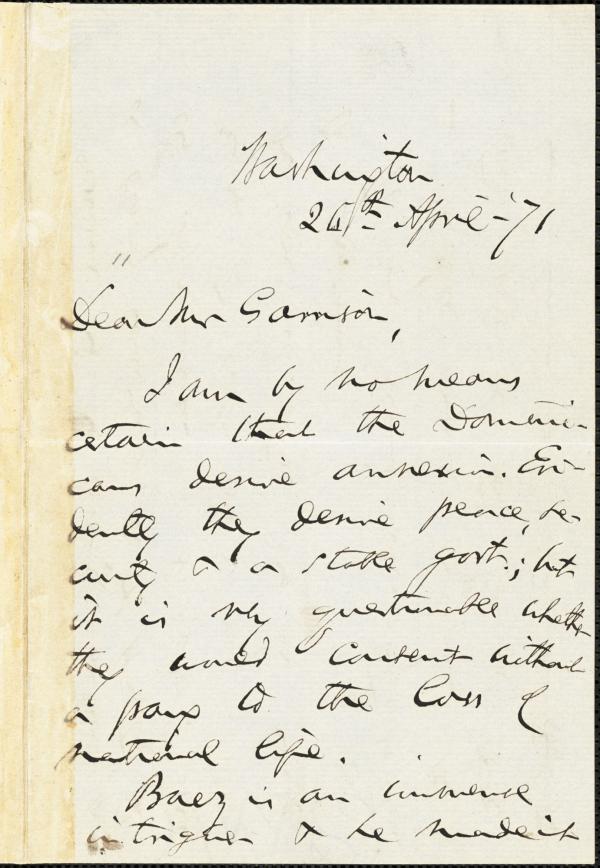 Washington
26th April - '71
"
Dear Mr Garrison,
I am by no means
certain that the Domini-
cans desire annexion. Evi-
dently they desire peace, se-
curity & a stable govt.; but
it is very questionable whether
they would consent without
a pang to the loss of
national life.
Baez is an immense
intriguer & he made it